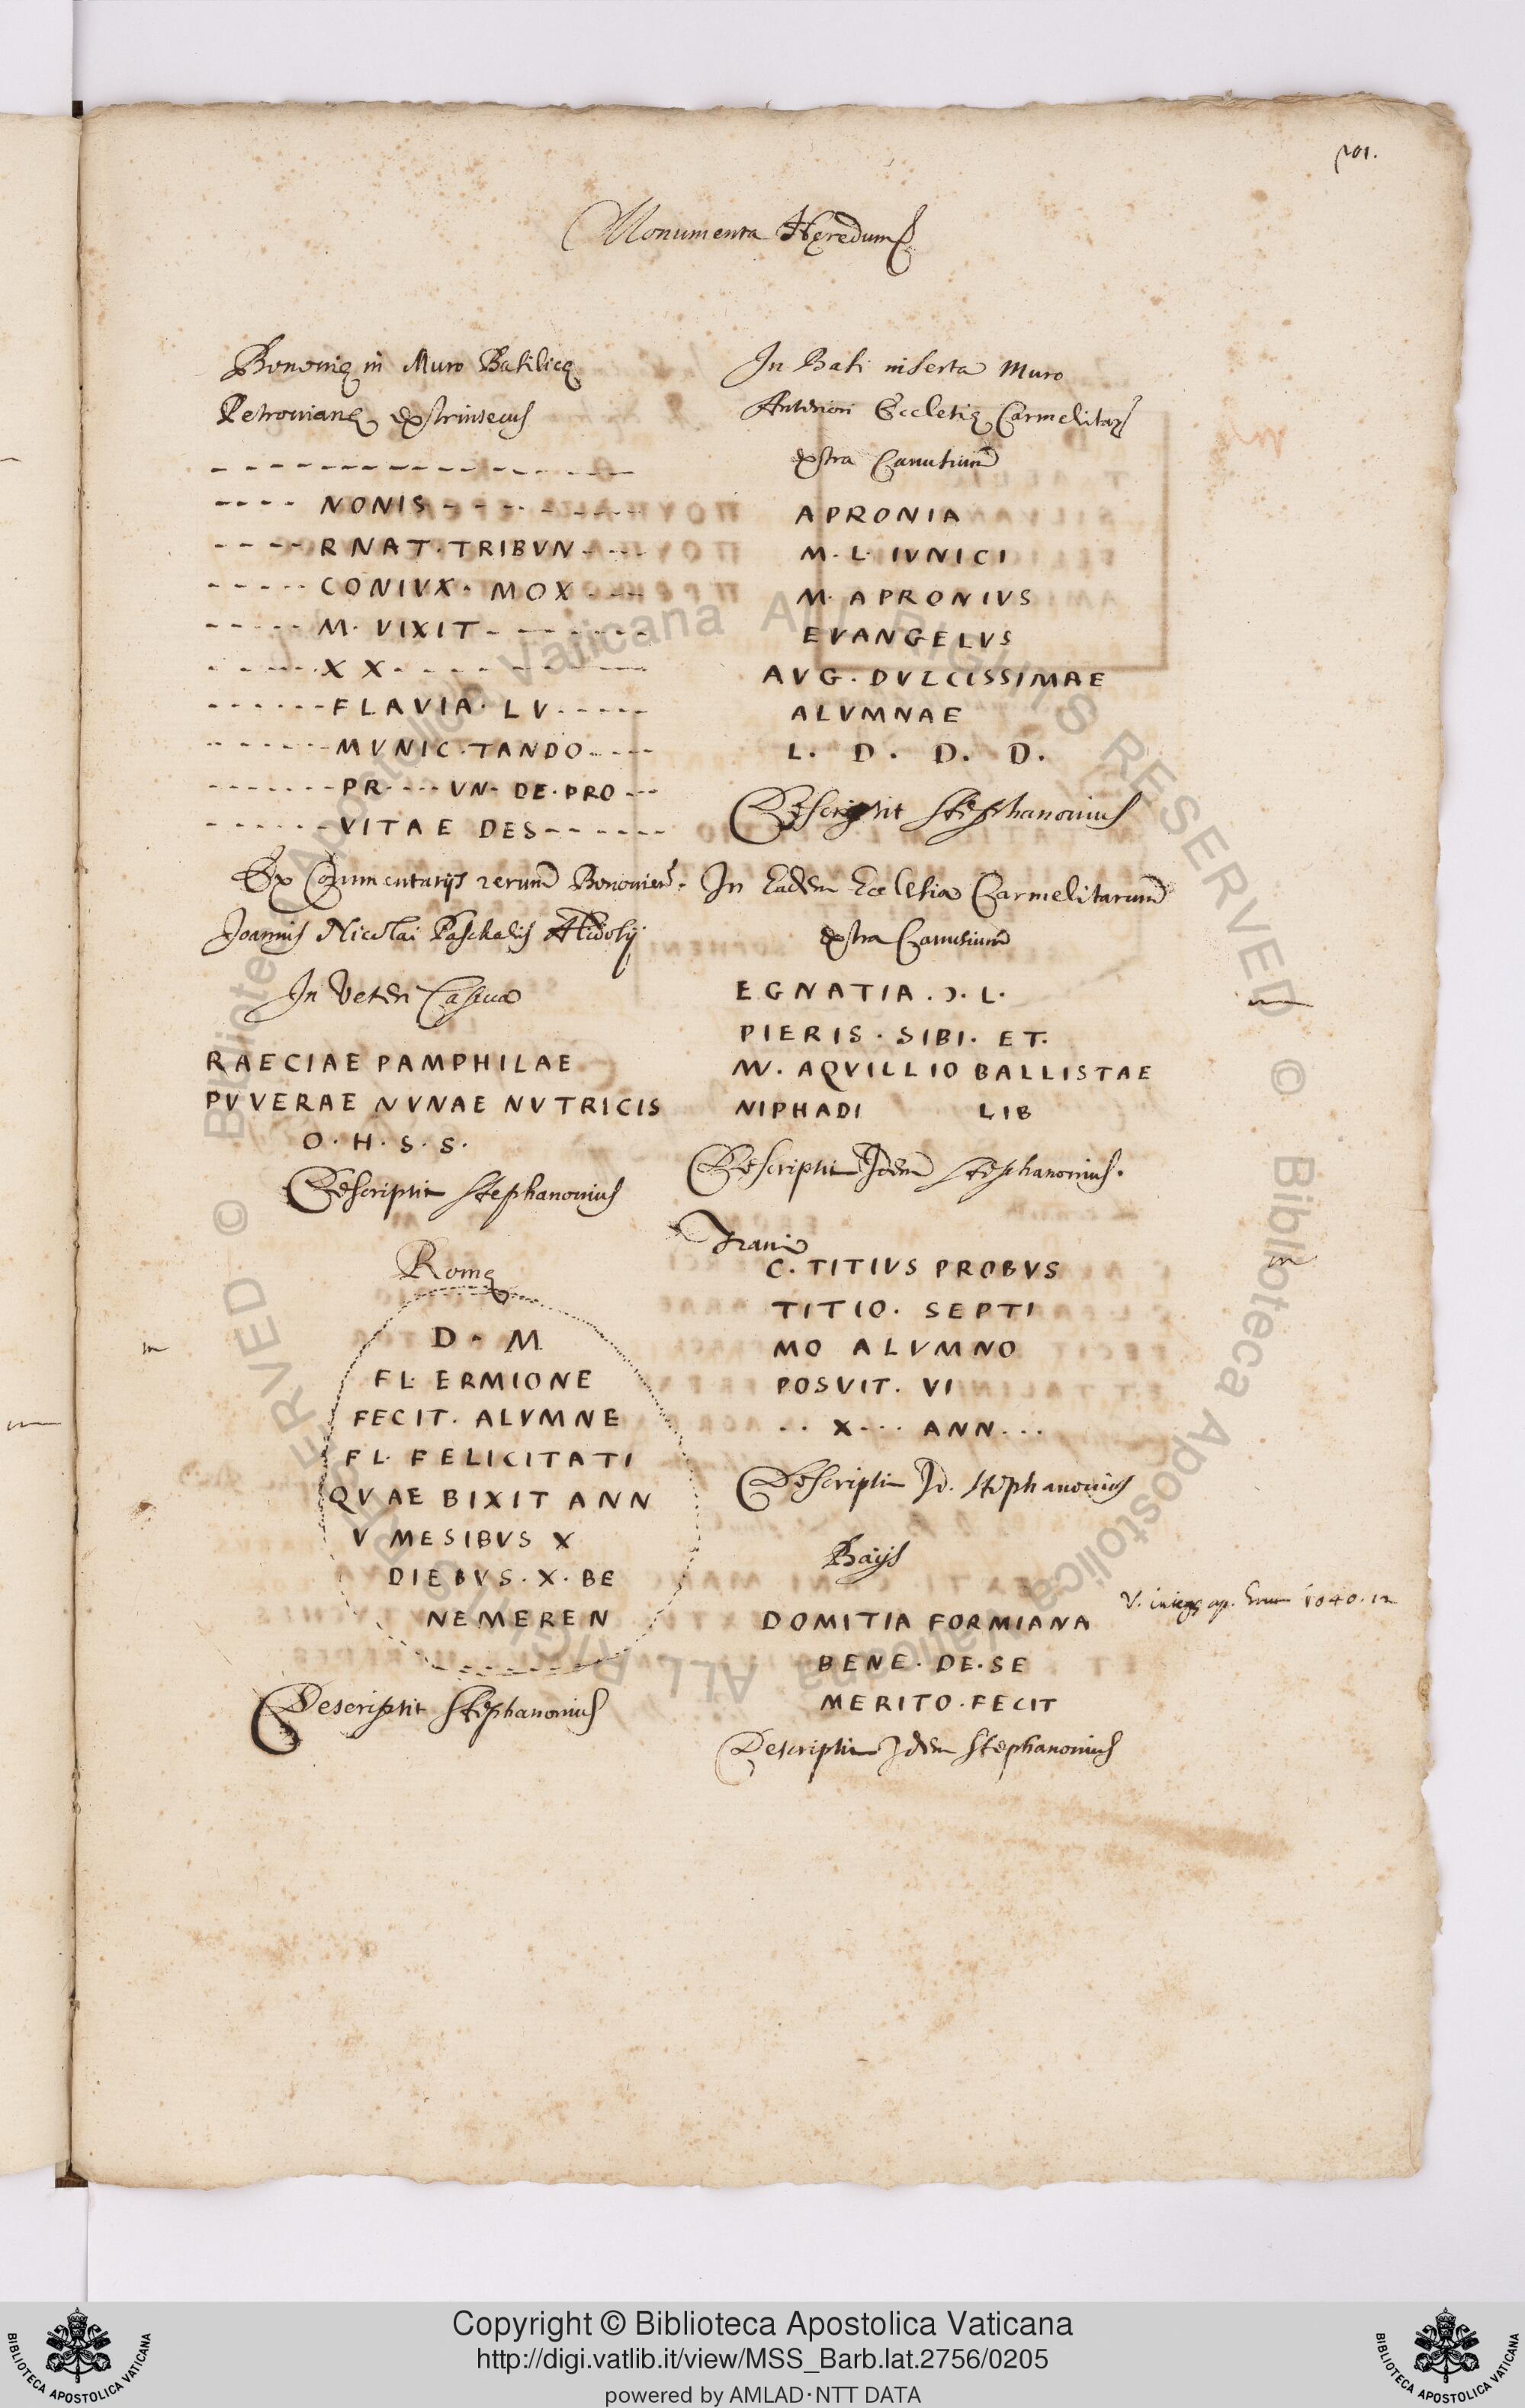 201.
Monumenta Heredum
Bononię in Muro Basilicę
Petronianę extrinsecus
- - - - - - - - - - - - - - - -
- - - - NONIS - - - - - - - -
- - - - RNAT · TRIBVN - - - -
- - - - - CONIVX · MOX - - - -
- - - - - M · VIXIT - - - - - - -
- - - - - X X - - - - - - - - - -
- - - - - - FLAVIA · LV - - - - -
- - - - - - MVNIC · TANDO - - - -
- - - - - - - PR - - - - VN · DE · PRO - - -
- - - - - - VITAE DES - - - - - -
Ex Commentarijs rerum Bononien.
Joannis Nicolai Paschalis Alidosij
In Veteri Capua
RAECIAE PAMPHILAE
PVVERAE NVNAE NVTRICIS
O · H · S · S ·
Descripsit Stephanonius
Romę
D · M
FL · ERMIONE
FECIT · ALVMNE
FL · FELICITATI
QVAE BIXIT ANN
V MESIBVS X
DIEBVS · X · BE
NEMEREN
Descripsit Stephanonius
In Basi inserta Muro
Anteriori Ecclesię Carmelitar
extra Canusium
APRONIA
M · L · IVNICI
M · APRONIVS
EVANGELVS
AVG · DVLCISSIMAE
ALVMNAE
L · D · D · D ·
Descripsit Stephanonius
In Eadem Ecclesia Carmelitarum
extra Canusium
EGNATIA · Ɔ · L ·
PIERIS · SIBI · ET ·
M · AQVILLIO BALLISTAE
NIPHADI LIB
Descripsit Idem Stephanonius.
Trani
C · TITIVS PROBVS
TITIO · SEPTI
MO ALVMNO
POSVIT · VI
· · X · · · ANN · · ·
Descripsit Id. Stephanonius
Baijs
DOMITIA FORMIANA
BENE · DE · SE
MERITO · FECIT
V. ap. 1040.12
Descripsit Idem Stephanonius
© Biblioteca Apostolica Vaticana ALL RIGHTS RESERVED © Biblioteca Apostolica Vaticana ALL RIGHTS RESERVED
BIBLIOTECA APOSTOLICA VATICANA
Copyright © Biblioteca Apostolica Vaticana
http://digi.vatlib.it/view/MSS_Barb.lat.2756/0205
powered by AMLAD·NTT DATA
BIBLIOTECA APOSTOLICA VATICANA